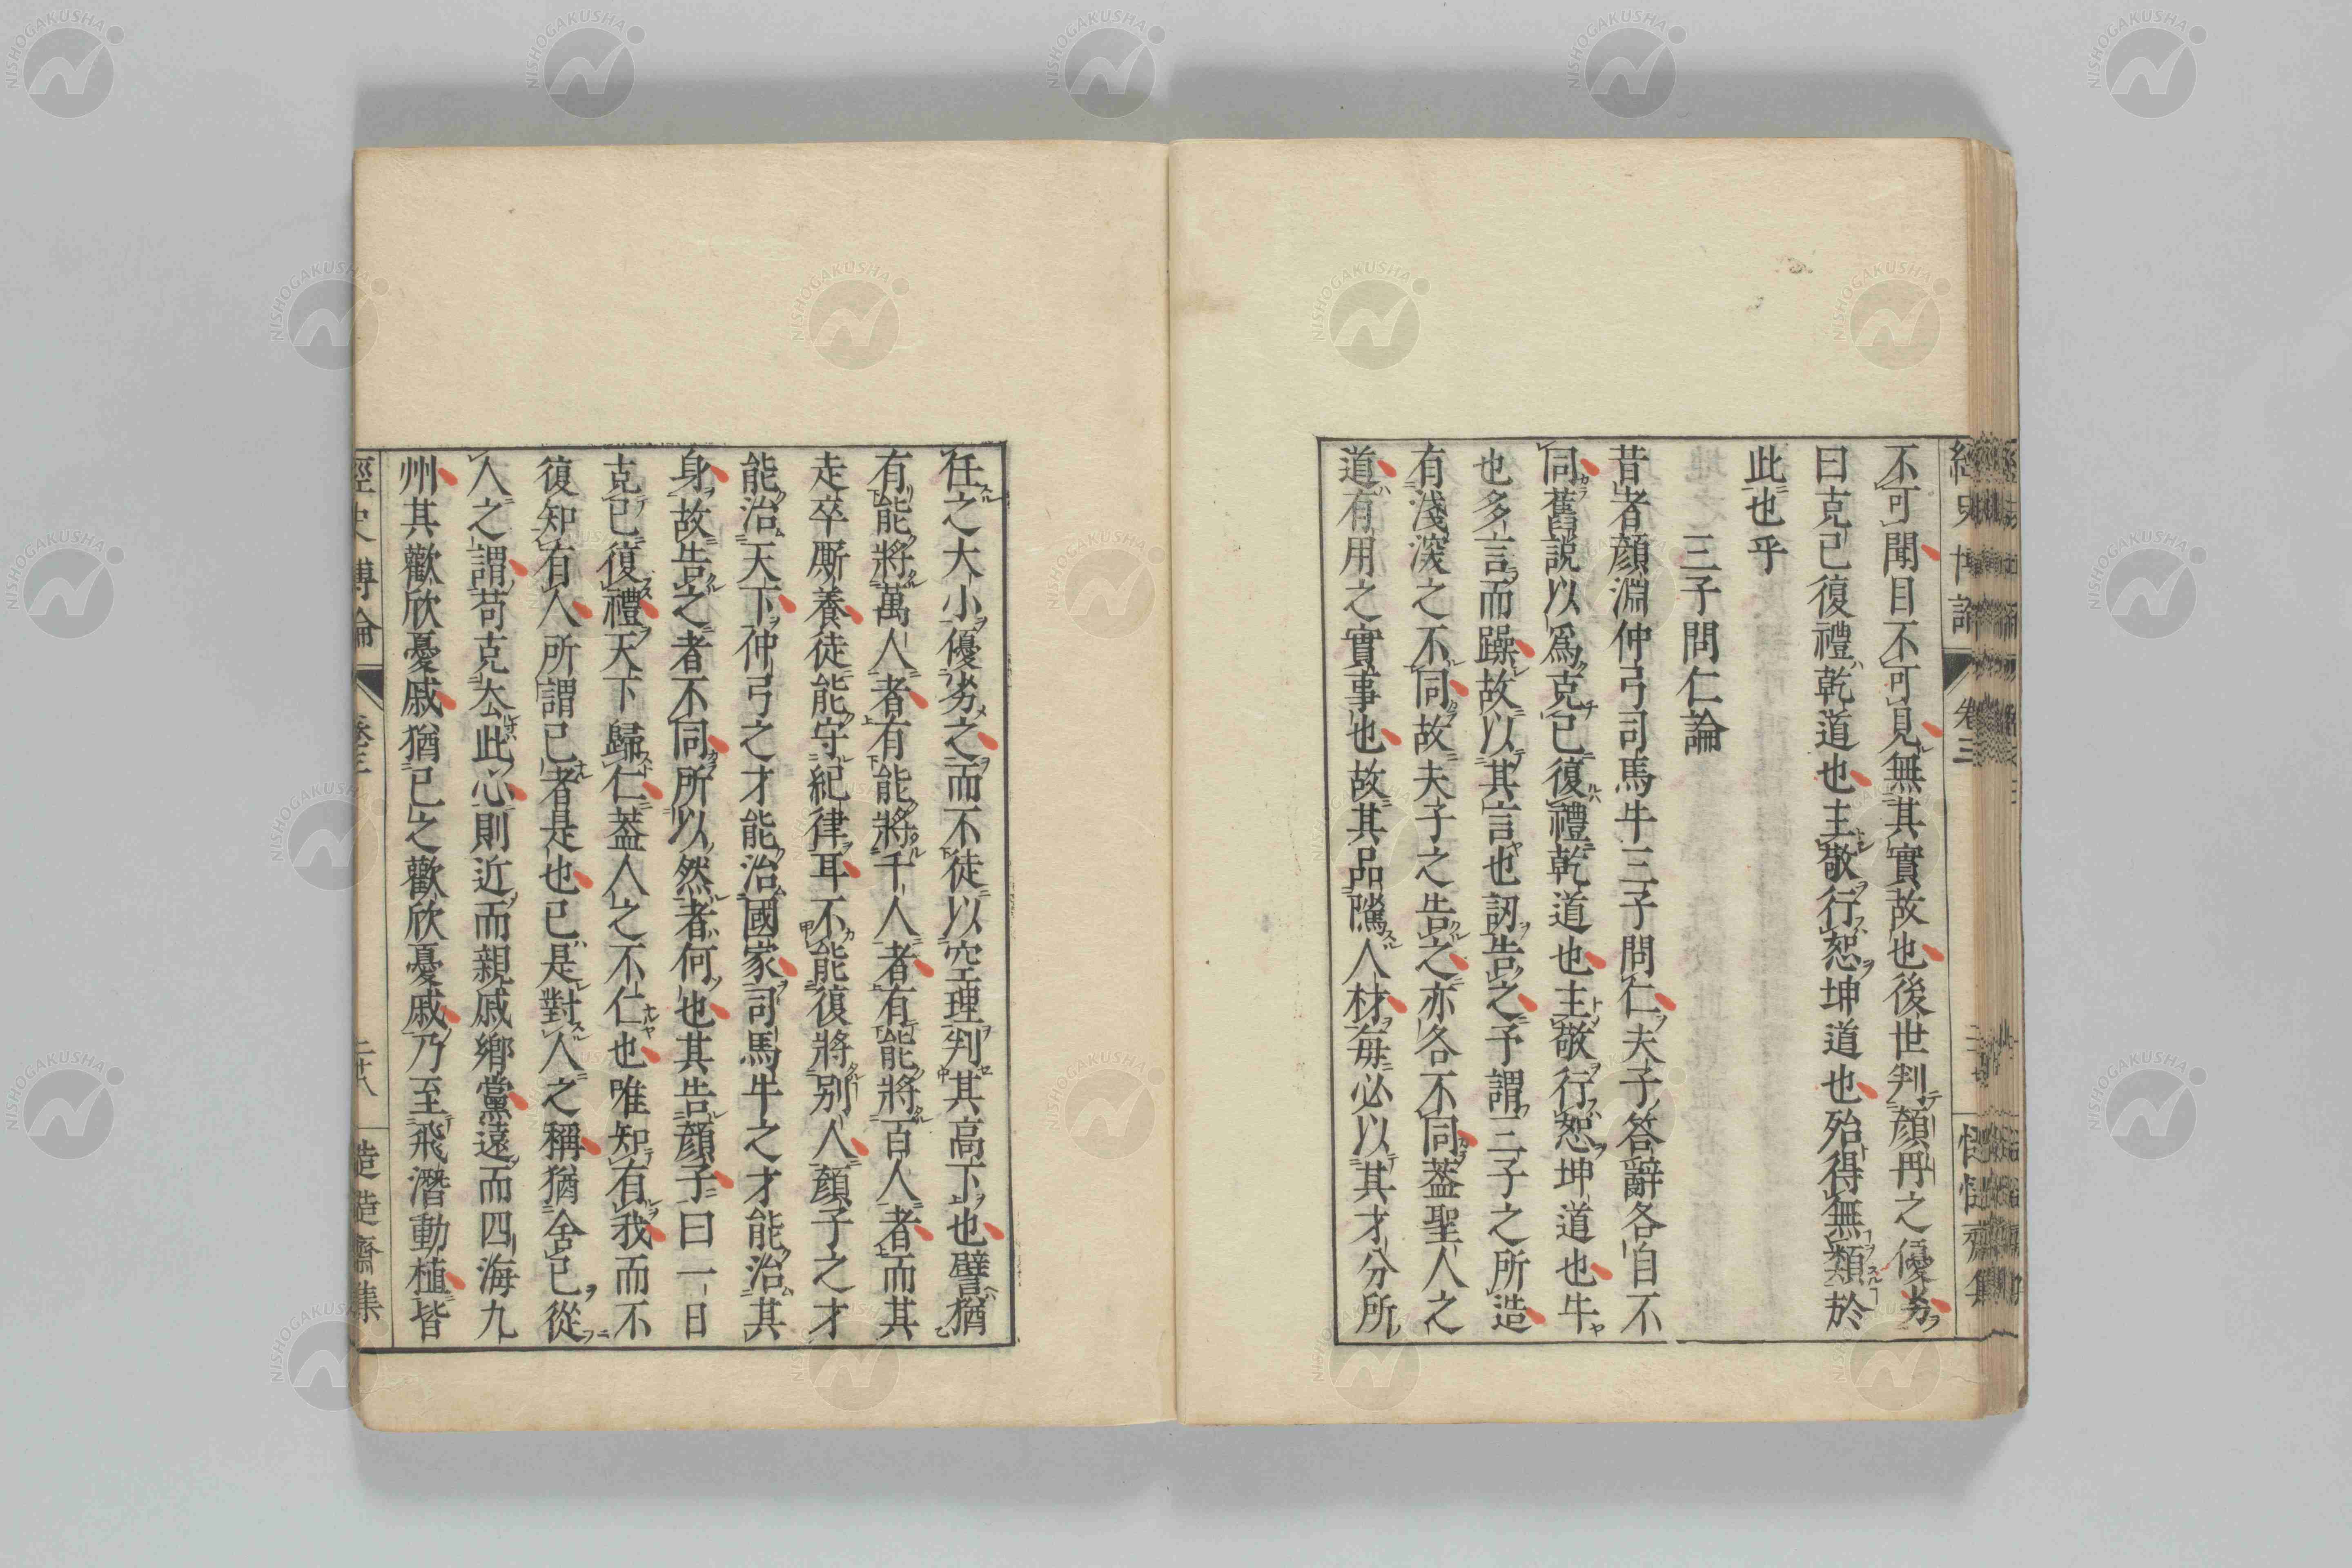 不可聞目不可見無其實故也後世判顔冉之優劣
曰克己復禮乾道也主敬行恕坤道也殆得無類於
此也乎
三子問仁論
昔者顔淵仲弓司馬牛三子問仁夫子答辭各自不
同舊説以爲克己復禮乾道也主敬行恕坤道也牛
也多言而躁故以其言也訒告之予謂三子之所造
有淺深之不同故夫子之告之亦各不同葢聖人之
道有用之實事也故其品隲人材毎必以其才分所
任之大小優劣之而不徒以空理判其高下也譬猶
有能將萬人者有能將千人者有能將百人者而其
走卒厮養徒能守紀律耳不能復將別人顔子之才
能治天下仲弓之才能治國家司馬牛之才能治其
身故告之者不同所以然者何也其告顔子曰一日
克己復禮天下歸仁葢人之不仁也唯知有我而不
復知有人所謂己者是也己是對人之稱猶舍己從
人之謂苟克厺此心則近而親戚鄉黨遠而四海九
州其歡欣憂戚猶己之歡欣憂戚乃至飛潛動植皆
經史博論 卷三 二十八 慥慥齋集
NISHOGAKUSHA